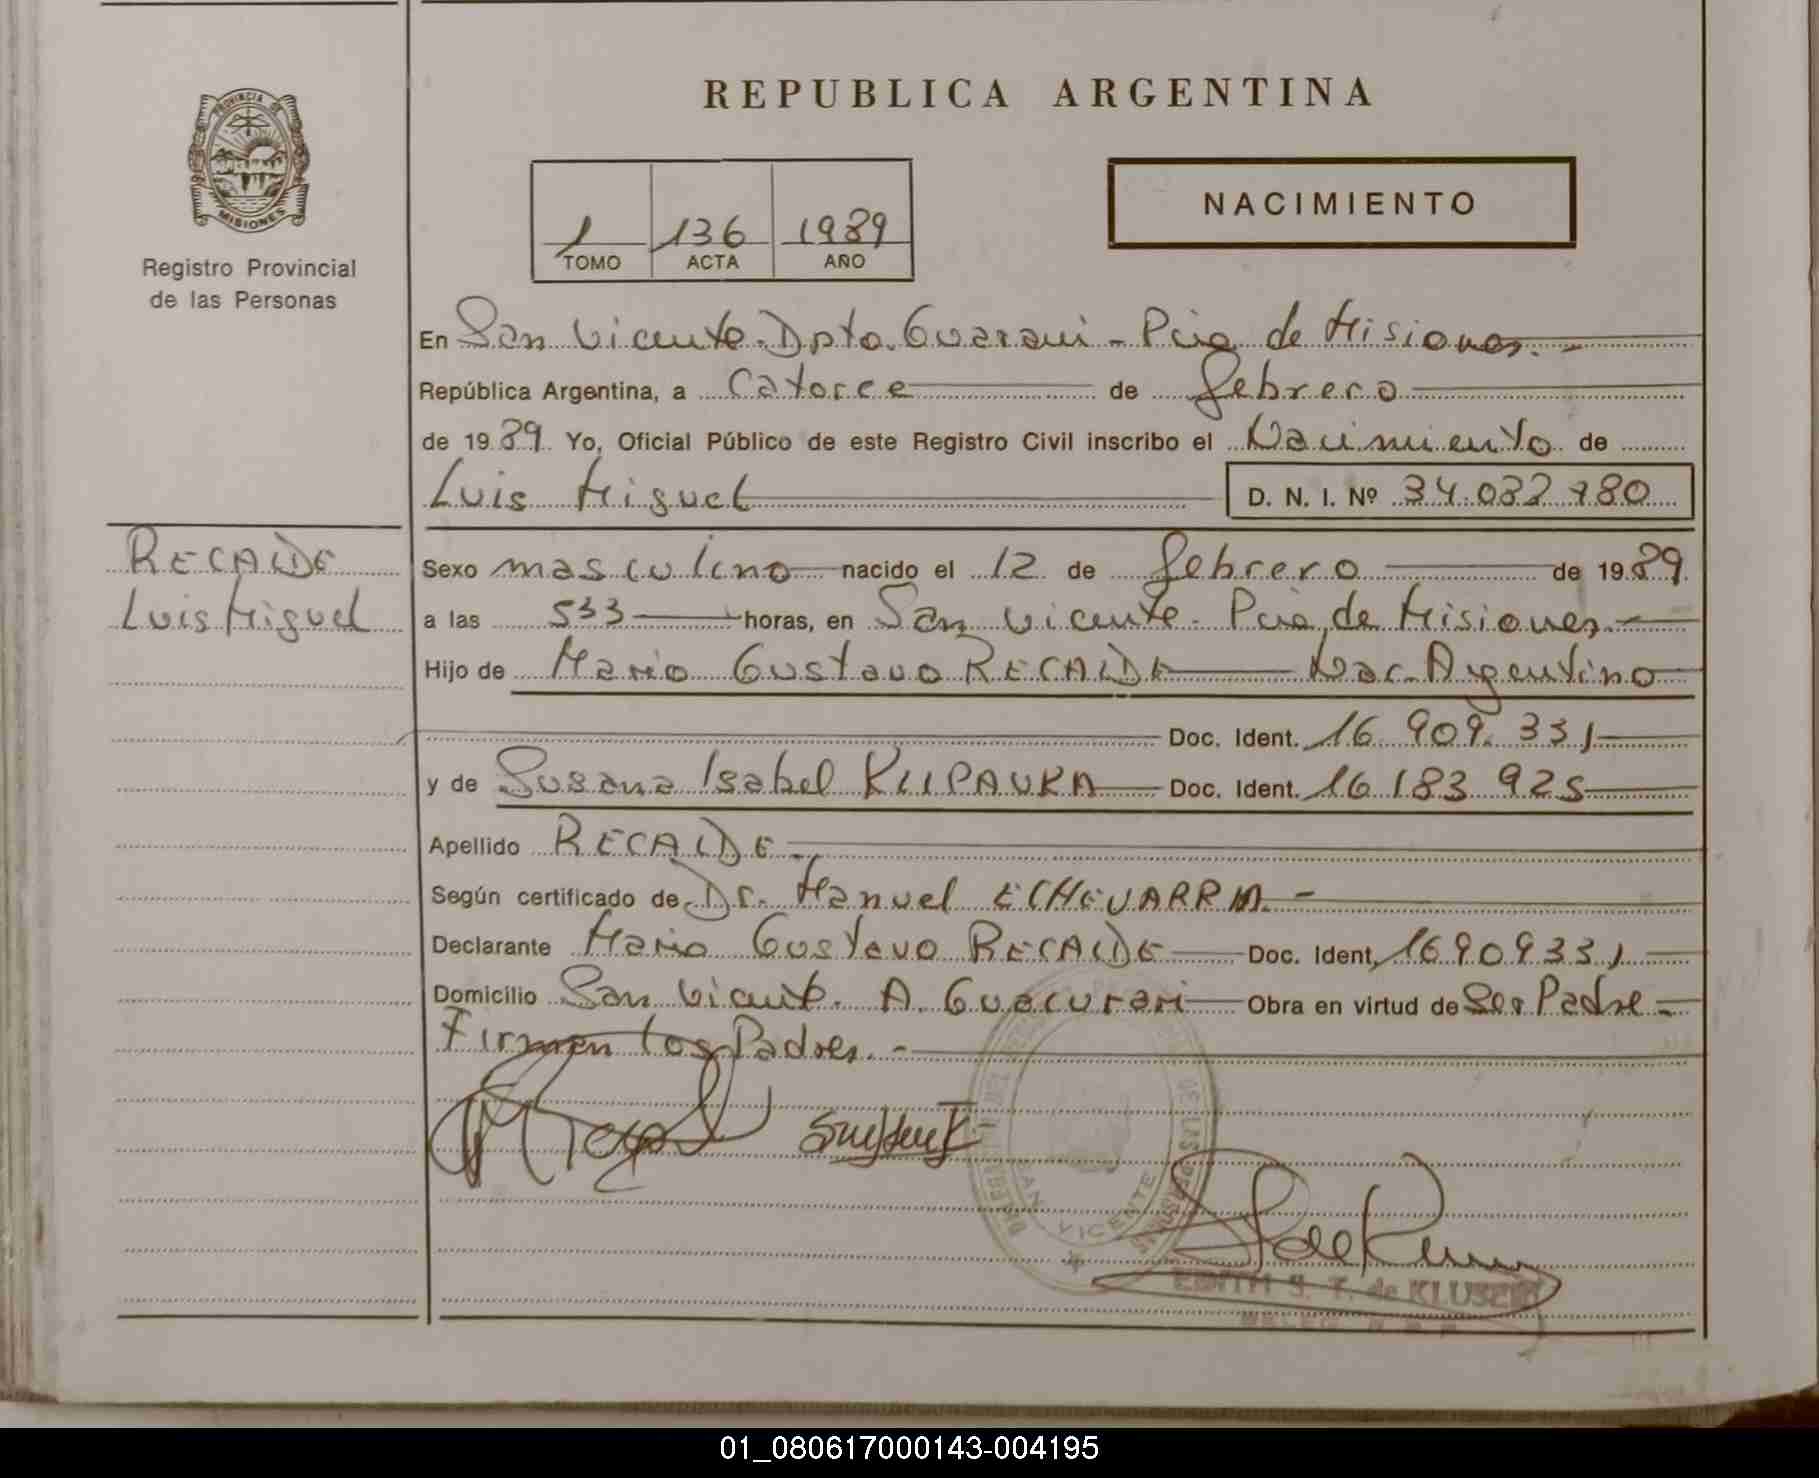 REPUBLICA ARGENTINA
PROVINCIA DE
MISIONES
Registro Provincial
de las Personas
1 136 1989
TOMO ACTA AÑO
NACIMIENTO
En San Vicente. Dpto. Guarani - Pcia de Misiones. -
República Argentina, a Catorce de febrero
de 1989 Yo, Oficial Público de este Registro Civil inscribo el Nacimiento de
Luis Miguel D. N. I. Nº 34.032 780
RECALDE
Luis Miguel
Sexo masculino nacido el 12 de febrero de 1989.
a las 533 horas, en San Vicente. Pcia de Misiones. -
Hijo de Mario Gustavo RECALDE Nac. Argentino
Doc. Ident. 16 909. 331
y de Susana Isabel Doc. Ident. 16 183 925
Apellido RECALDE. -
Según certificado de Dr. Manuel ECHEVARRIA. -
Declarante Mario Gustavo RECALDE Doc. Ident. 16909331
Domicilio San Vicente. A. Guacurari Obra en virtud de Ser Padre -
Firman los Padres. -
DE LAS PERSONAS
SAN VICENTE
EDITH S. T. de KLUSENER
01_080617000143-004195